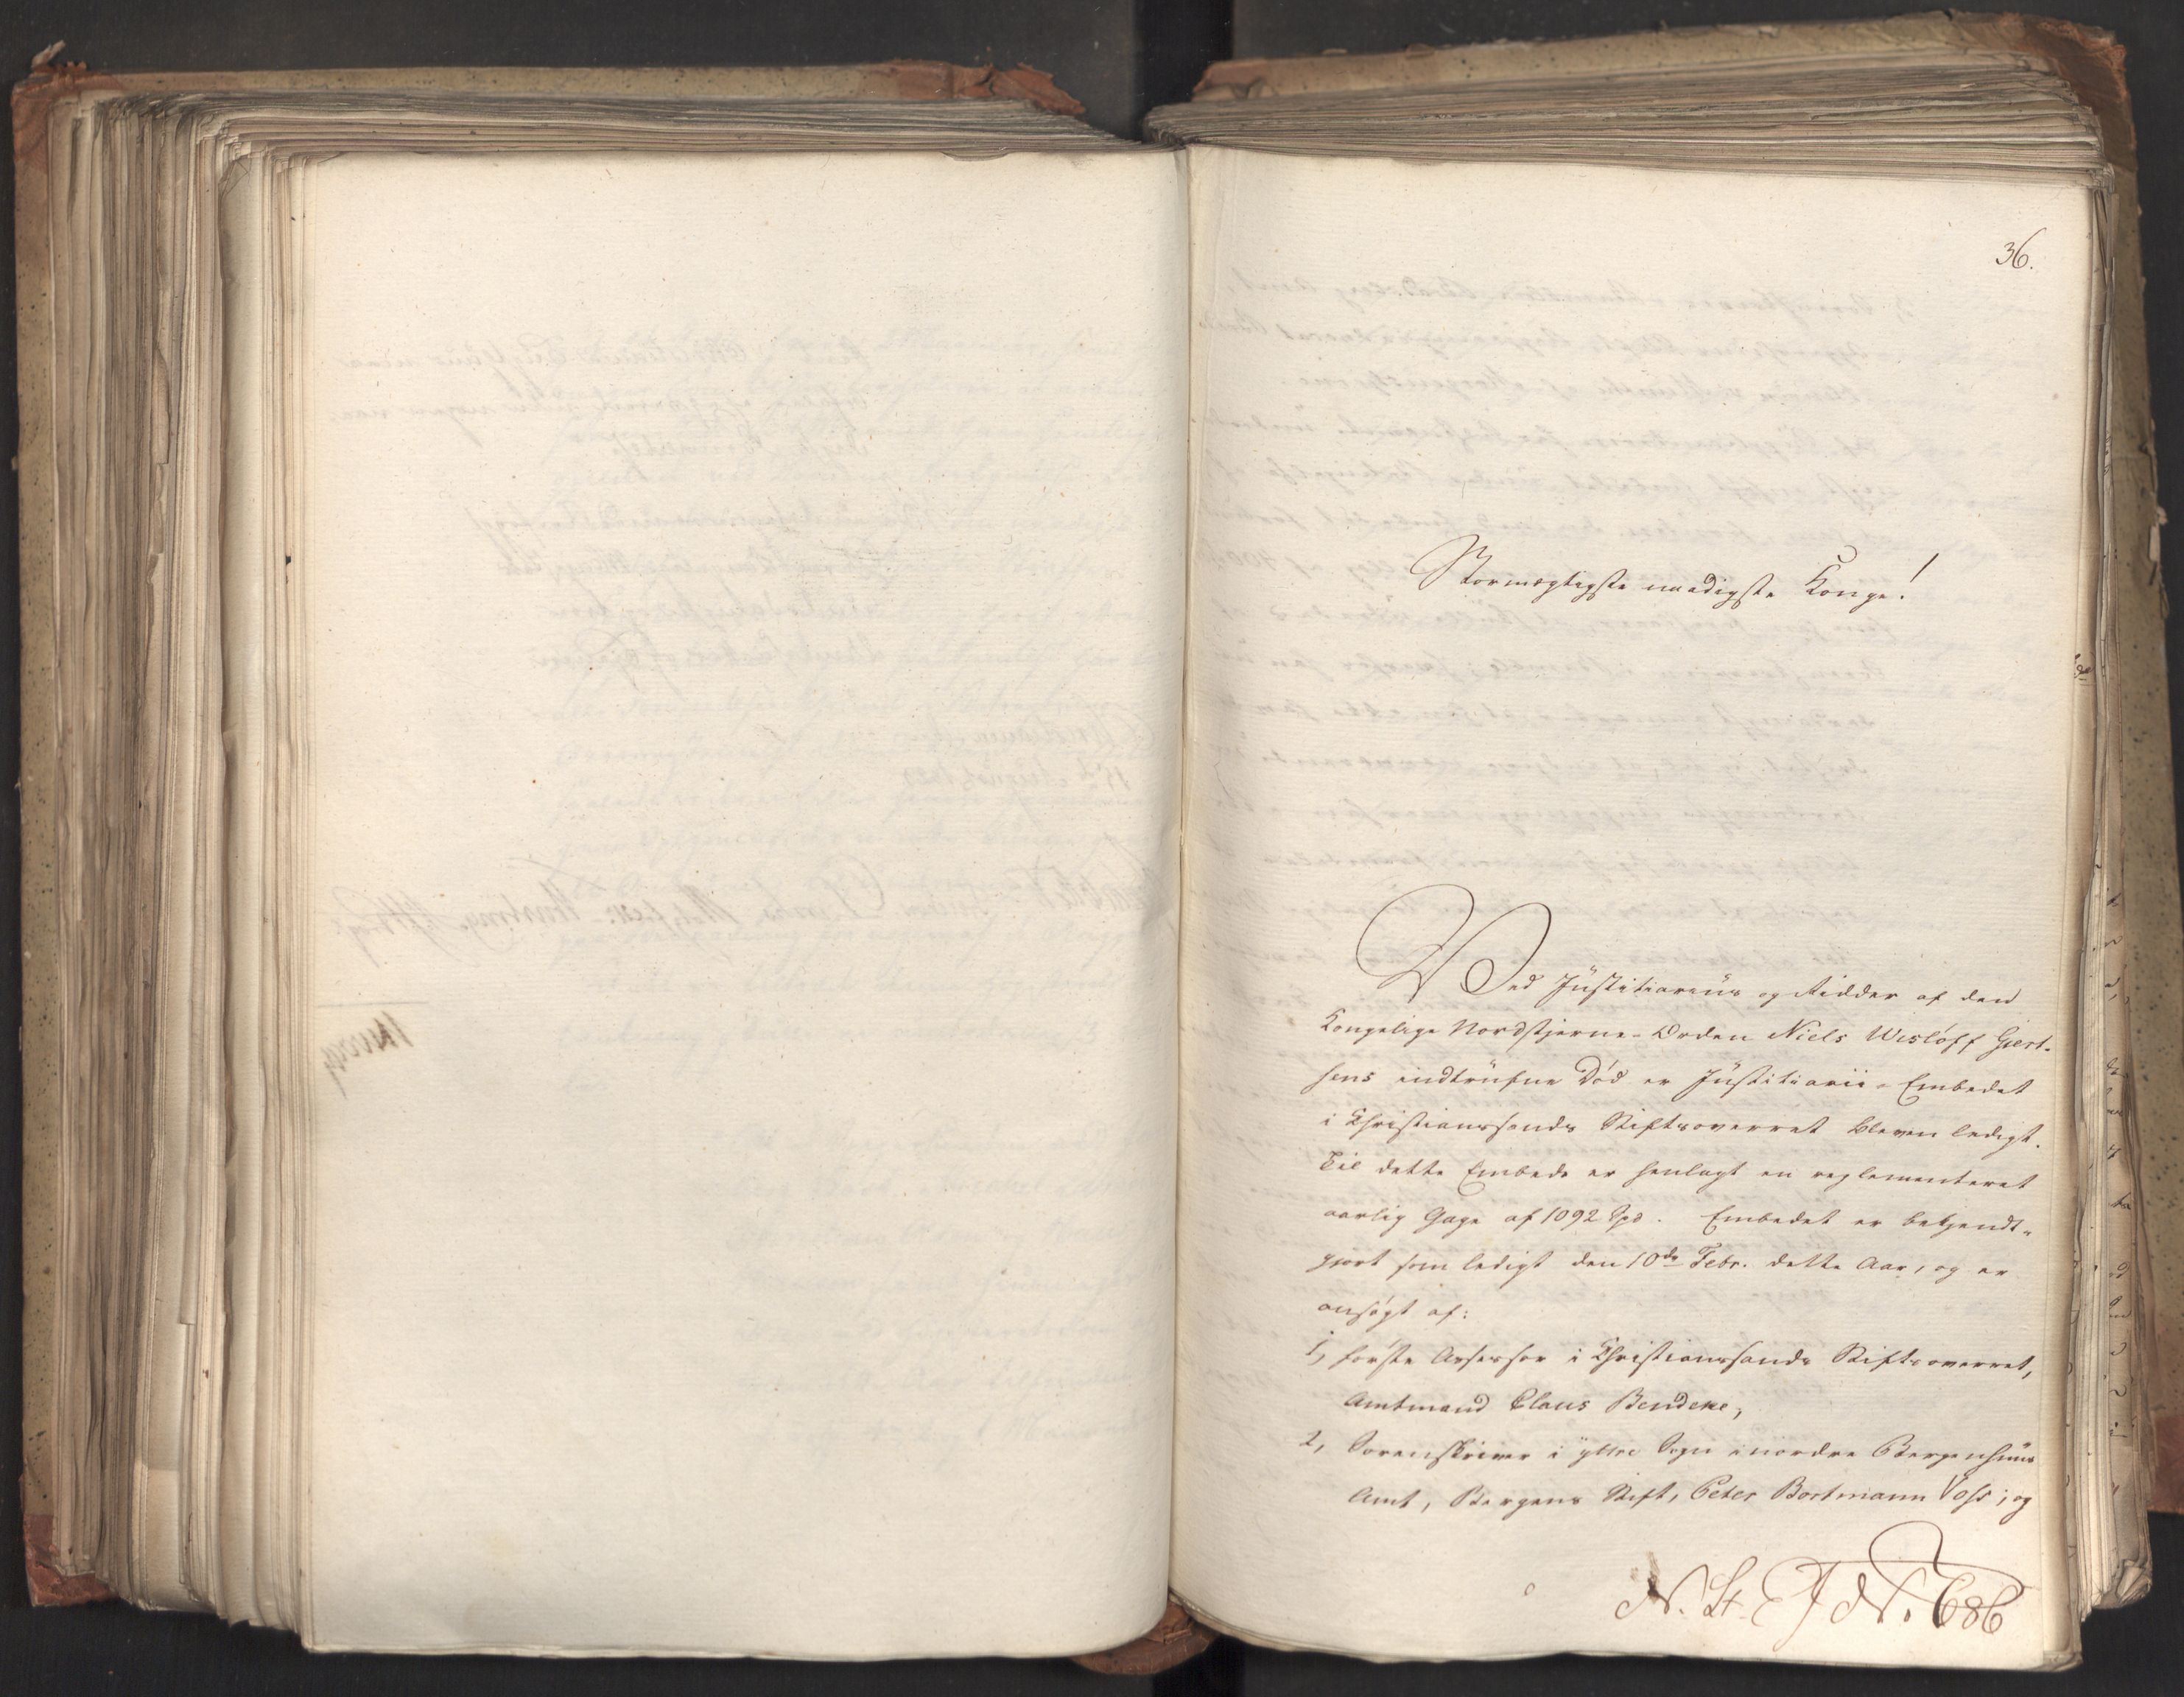 36.
Stormægtigste naadigste Konge!
Ved Justitiarius og Ridder af den
Kongelige Nordstjerne-Orden Niels Wisløff Giert-
sens indtrufne Død er Justitiarii-Embedet
i Christianssands Stiftsoverret bleven ledigt.
Til dette Embede er henlagt en reglementeret
aarlig Gage af 1092 Spd. Embedet er bekjendt-
gjort som ledigt den 10de Febr. dette Aar, og er
ansøgt af:
1, første Assessor i Christianssands Stiftsoverret,
Amtmand Claus Bendeke,
2, Sorenskriver i yttre Sogn i nordre Bergenhuus
Amt, Bergens Stift, Peter Bortmann Voss; og
N. St. E J N. 686